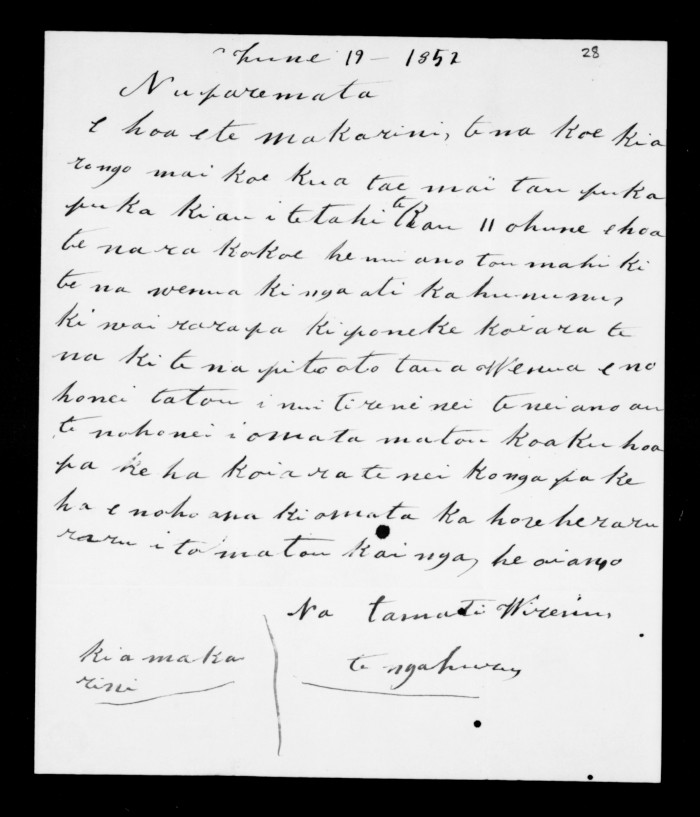 June 19 - 1852
28
Nuparemata
e hoa e te makarini, tena koe kia
rongo mai koe kua tae mai tau puka
puka ki au i te tahi te Rau 11 ohune e hoa
te na ra kokoe he nui ano tou mahi ki
te na wenua ki nga ati kahununu,
ki wairarapa ki poneke koiara te
na ki te na pito oto taua Wenua e no
honei tatou i nui tireni nei te nei ano au
te nohonei i omata matou ko aku hoa
pa ke ha koiara te nei ko nga pa ke
ha e noho ana ki omata ka hore he raru
raru i to matou kainga, he oi ano
Na tamati Wiremu,
te ngahuru,
kia maka
rini